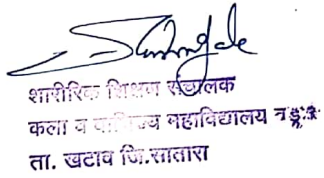 शारीरिक शिक्षण संचालक
कला व वाणिज्य महाविद्यालय वडूज
ता. खटाव जि.सातारा